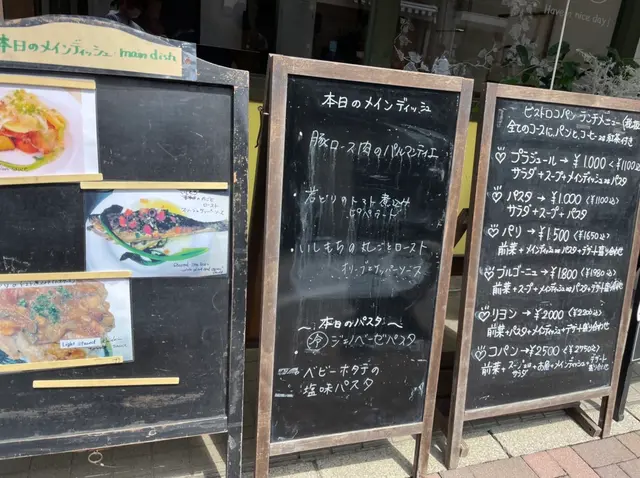 本日のメインディッシュ main dish
Light stewed
Have a nice day!
本日のメインディッシュ
豚ロース肉のパルマンティエ
若どりのトマト煮込み
ピペラード
いしもちの丸ごとロースト
オリーブケッパーソース
〜本日のパスタ〜
冷 ジェノベーゼパスタ
ベビーホタテの
塩味パスタ
ビストロコパン・ランチメニュー
全てのコースにパンとコーヒーor紅茶付き
プラジュール→¥1.000<¥1100込>
サラダ+スープ+メインディッシュorパスタ
パスタ→¥1.000<¥1100込>
サラダ+スープ+パスタ
パリ→¥1.500<¥1650込>
前菜+メインディッシュorパスタ+デザート盛り合わせ
ブルゴーニュ→¥1800<¥1980込>
前菜+スープ+メインディッシュ+デザート盛り合わせ
リヨン→¥2000<¥2200込>
前菜+パスタ+メインディッシュ+デザート盛り合わせ
コパン→¥2500<¥2750込>
前菜+スープorサラダ+お魚+メインディッシュ+デザート盛り合わせ